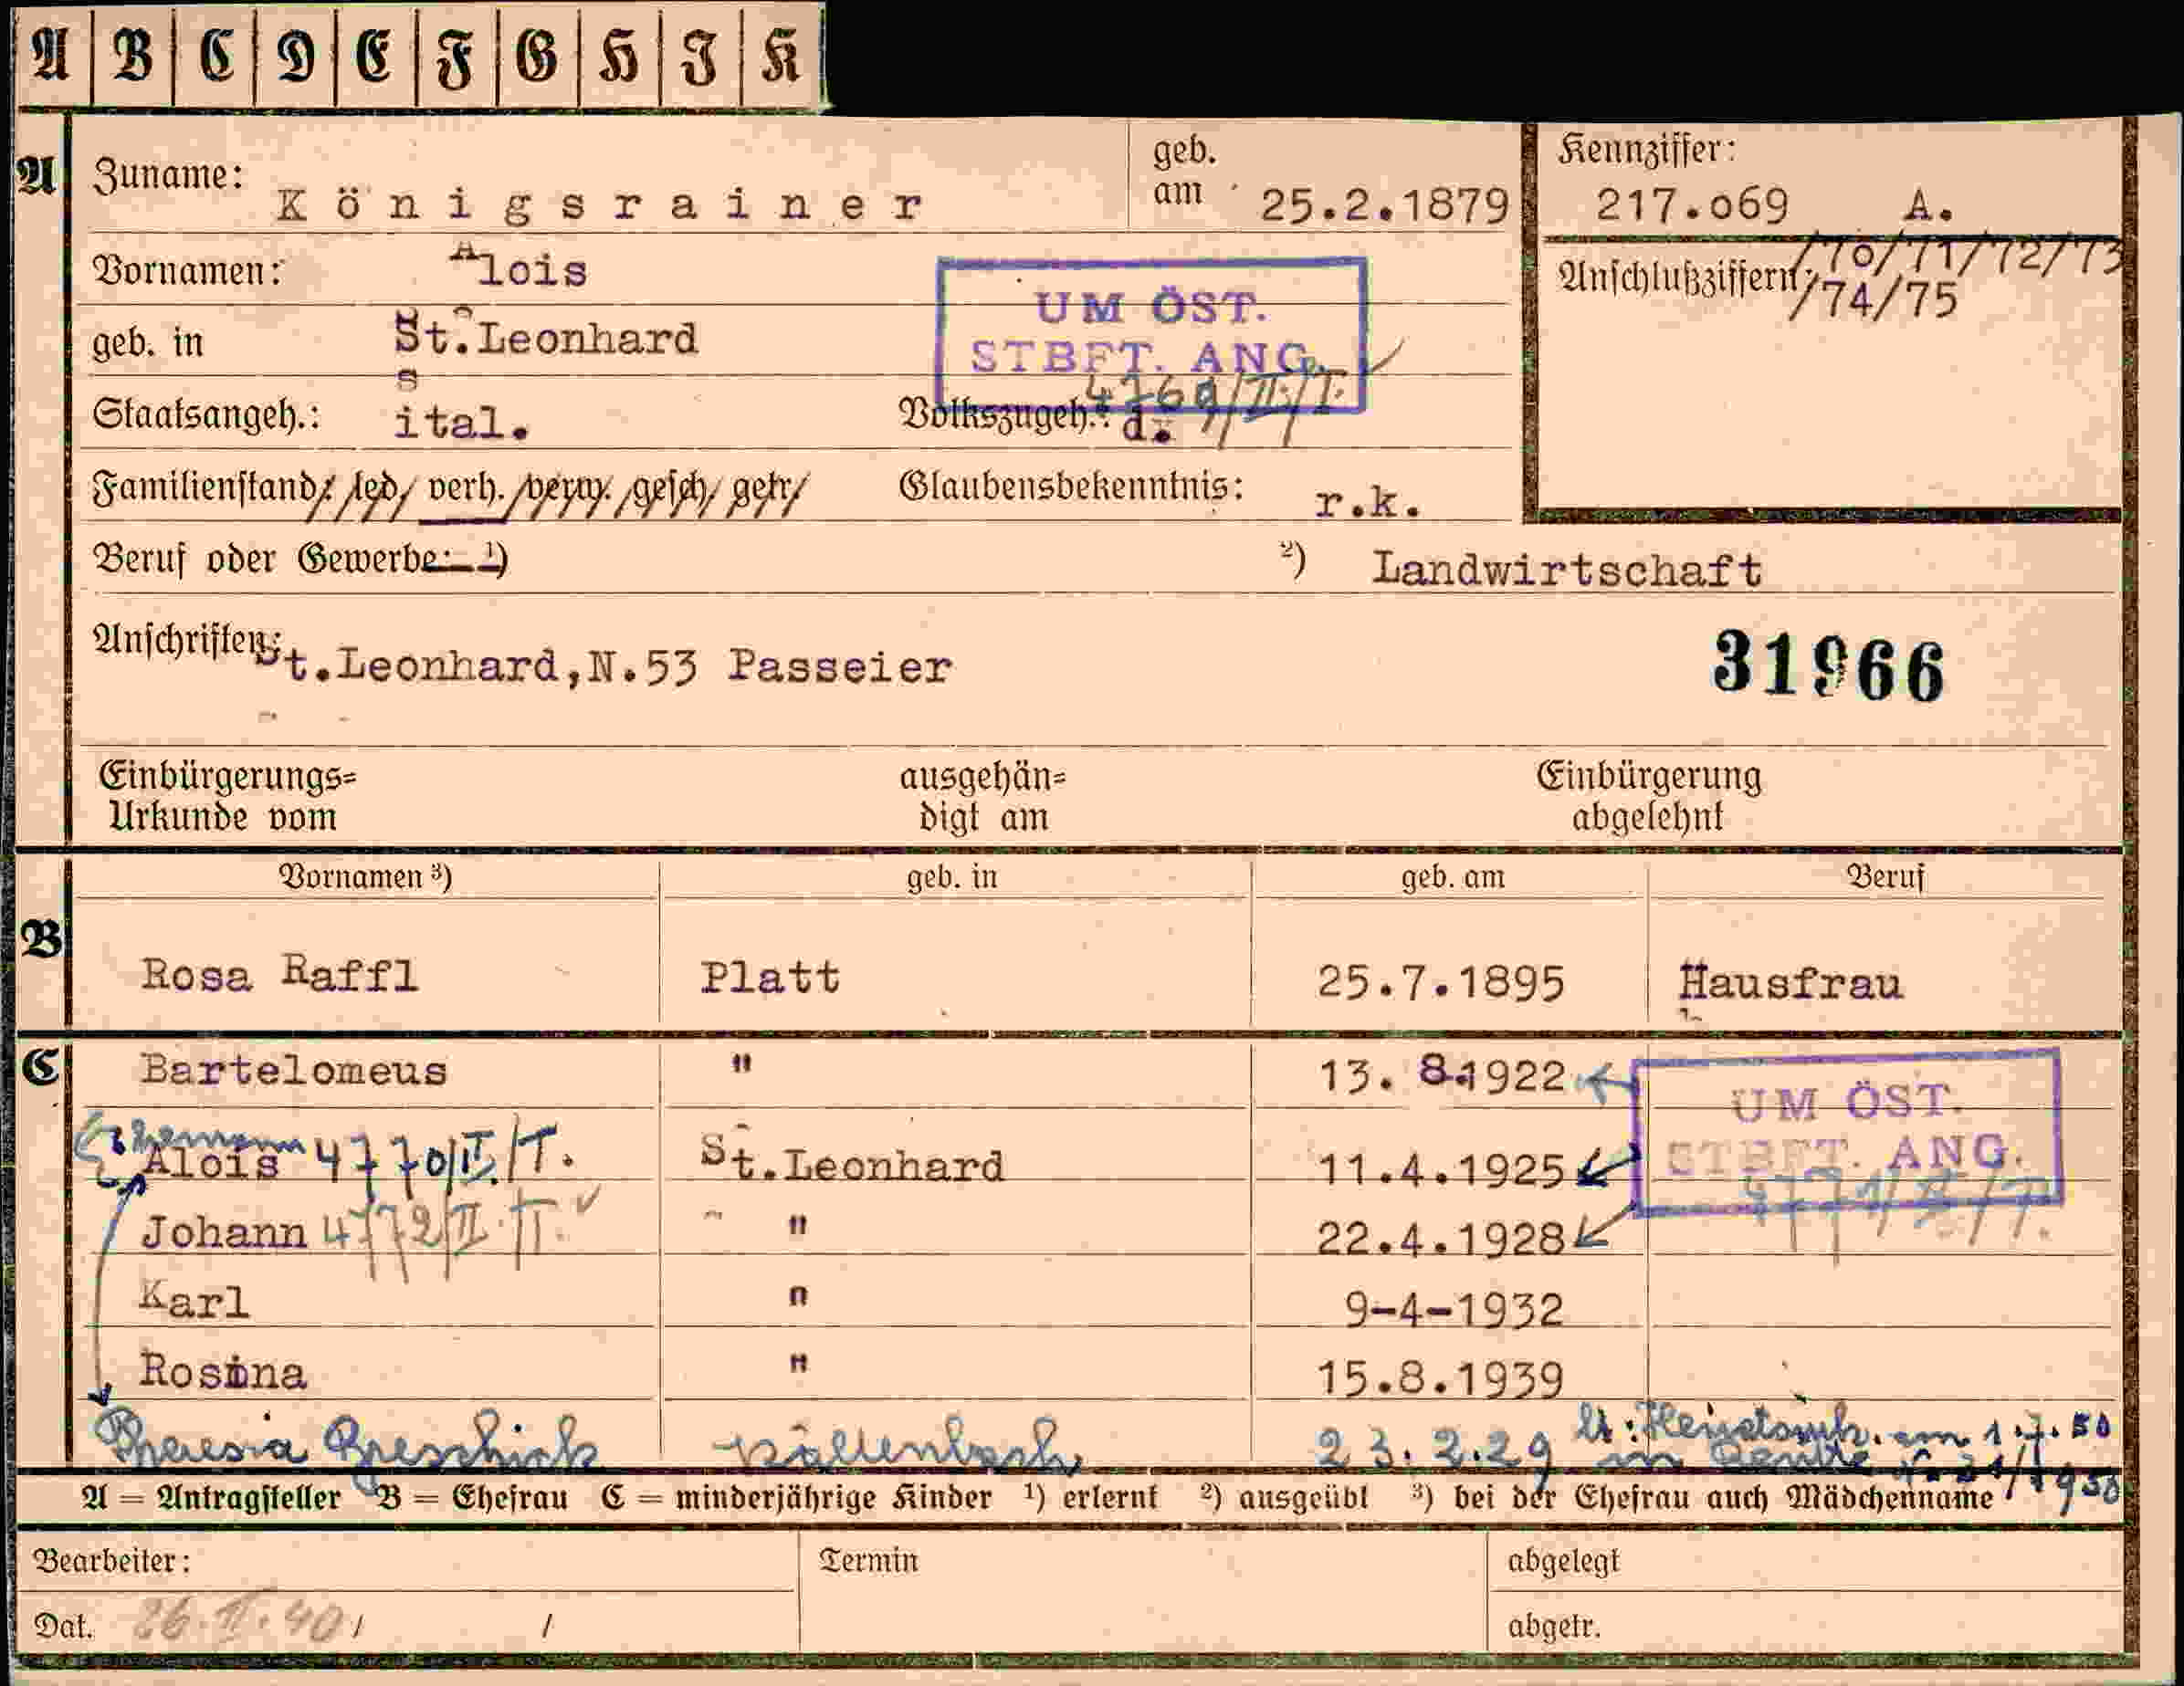 A B C D E F G H I K
A Zuname: Königsrainer geb. am 25.2.1879 Kennziffer: 217.069 A.
Vornamen: Alois Anschlußziffern: /70/71/72/73
/74/75
UM ÖST.
STBFT. ANG.
geb. in St.Leonhard
Staatsangeh.: ital. Volkszugeh.: d. 4769/II/T.
Familienstand: led. verh. verw. gesch. getr. Glaubensbekenntnis: r.k.
Beruf oder Gewerbe: 1) 2) Landwirtschaft
Anschriften: St.Leonhard,N.53 Passeier 31966
Einbürgerungs= Urkunde vom ausgehän= digt am Einbürgerung abgelehnt
Vornamen 3) geb. in geb. am Beruf
B Rosa Raffl Platt 25.7.1895 Hausfrau
C Bartelomeus " 13. 8.1922
UM ÖST.
STBFT. ANG.
4771/II/T.
Ehemann
Alois 4770/II/T. St.Leonhard 11.4.1925
Johann 4772/II.T. " 22.4.1928
Karl " 9-4-1932
Rosina " 15.8.1939
Theresia 23.2.29 am 1.7.50
in Reutte 1950
A = Antragsteller B = Ehefrau C = minderjährige Kinder 1) erlernt 2) ausgeübt 3) bei der Ehefrau auch Mädchenname
Bearbeiter: Termin abgelegt
Dat. 26.II.40/ / abgetr.